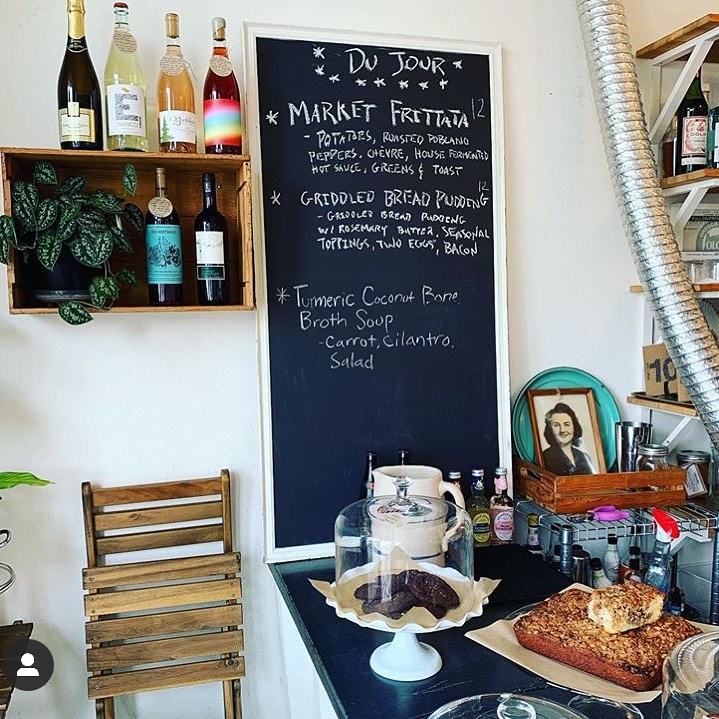 * Du Jour *
* * * * * *
* Market Frittata 12
- Potatoes, Roasted Poblano
Peppers, Chèvre, House Fermented
Hot Sauce, Greens & Toast
* Griddled Bread Pudding 12
- Griddled Bread Pudding
w/ Rosemary Butter, Seasonal
Toppings, Two Eggs, Bacon
* Turmeric Coconut Bone
Broth Soup
- Carrot, Cilantro,
Salad
E
10